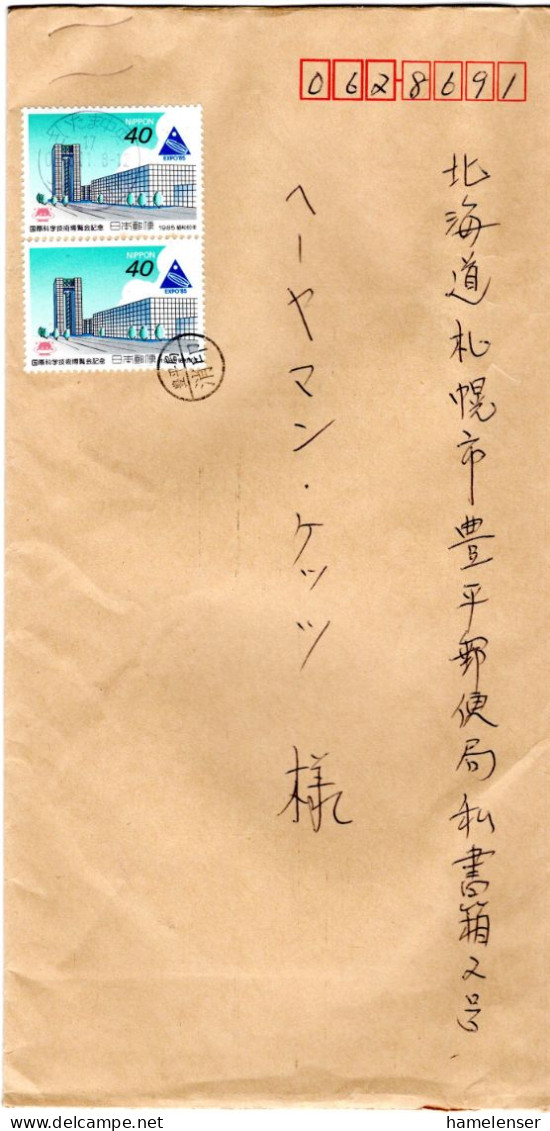 062-8691
北海道札幌市豊平郵便局私書箱2号
ヘーヤマン・ケッツ 様
NIPPON
40
EXPO'85
国際科学技術博覧会記念 日本郵便 1985 昭和60年
NIPPON
40
EXPO'85
国際科学技術博覧会記念 日本郵便
消印
delcampe.net
hamelenser